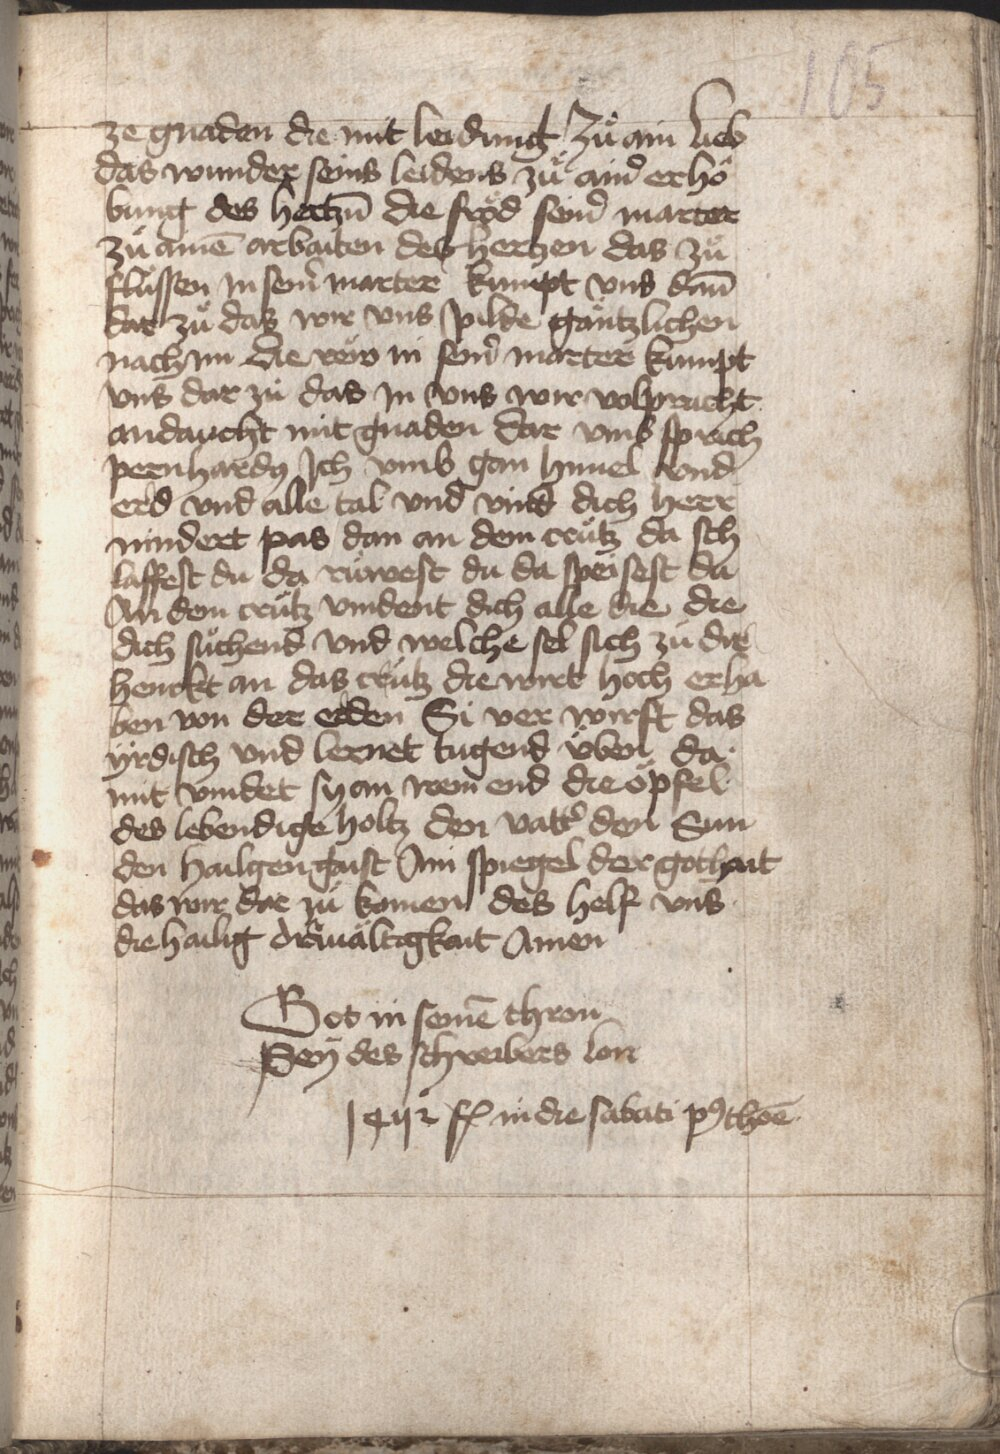 105
ze gnaden die mit leidung Zuͦ ain lieb
das wunder seins leidens zuͦ ainer erhoͤ
bung des hertzn̄ die froͤd seinˀ marter
zuͦ ainē arbaiten des herczen das zuͦ
fluͤssen in seinˀ marter kumpt vns dan̄
dar zuͦ das wir vns pilde gaͤntzlichen
nach im die rew in seinˀ marter kumpt
vns dar zuͦ das in vns wir volpracht
andaucht mit gnaden Dar vmb sprich
pernhardꝰ Ich vmb gan himel vnd
erd vnd alle tal vnd vind dich herr
nindert pas dan an dem cruͤtz da sch
laffest du da ruͦwest du da speisest du
An dem cruͤtz vindent dich alle die die
dich suͦchend vnd welche sel sich zuͦ dir
henckt an das cruͤtz die wirt hoch erha
ben von der erden Si ver wirft das
yrdisch vnd lernet tugend uͤben da
mit vindet sy an end die oͤpfel
des lebendigē holtz den vattˀ den Sun
den hailgen gaist Ain spiegel der gothait
das wir dar zuͦ komen des helf vns
die hailig drinaͤltigkait Amen
Got in seinē thron
Sey des schreibers lon
in die sabati pꝰ